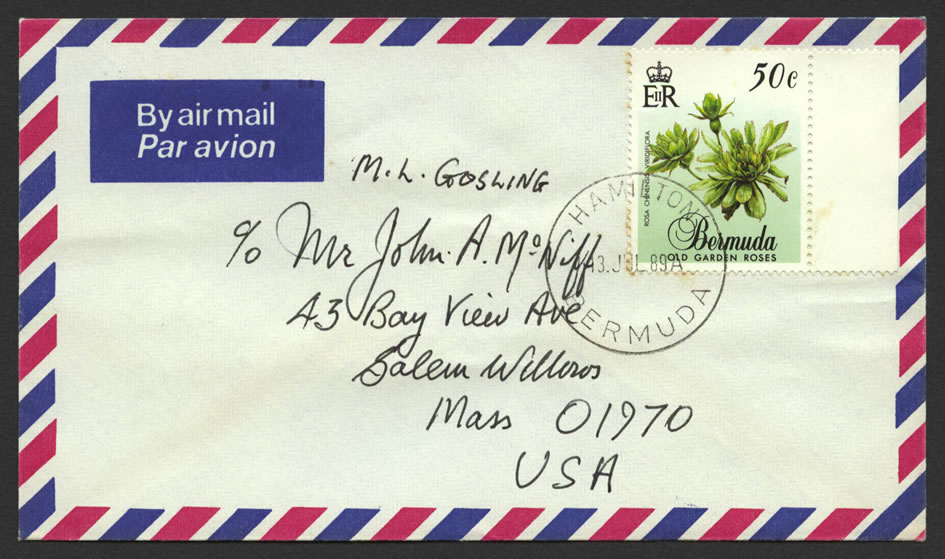 By air mail
Par avion
EIIR
50c
ROSA CHINENSIS VIRIDIFLORA
Bermuda
OLD GARDEN ROSES
HAMILTON
13.JUL 89A
BERMUDA
M. L. GOSLING
c/o Mr John A. McNiff
43 Bay View Ave
Salem Willows
Mass 01970
USA